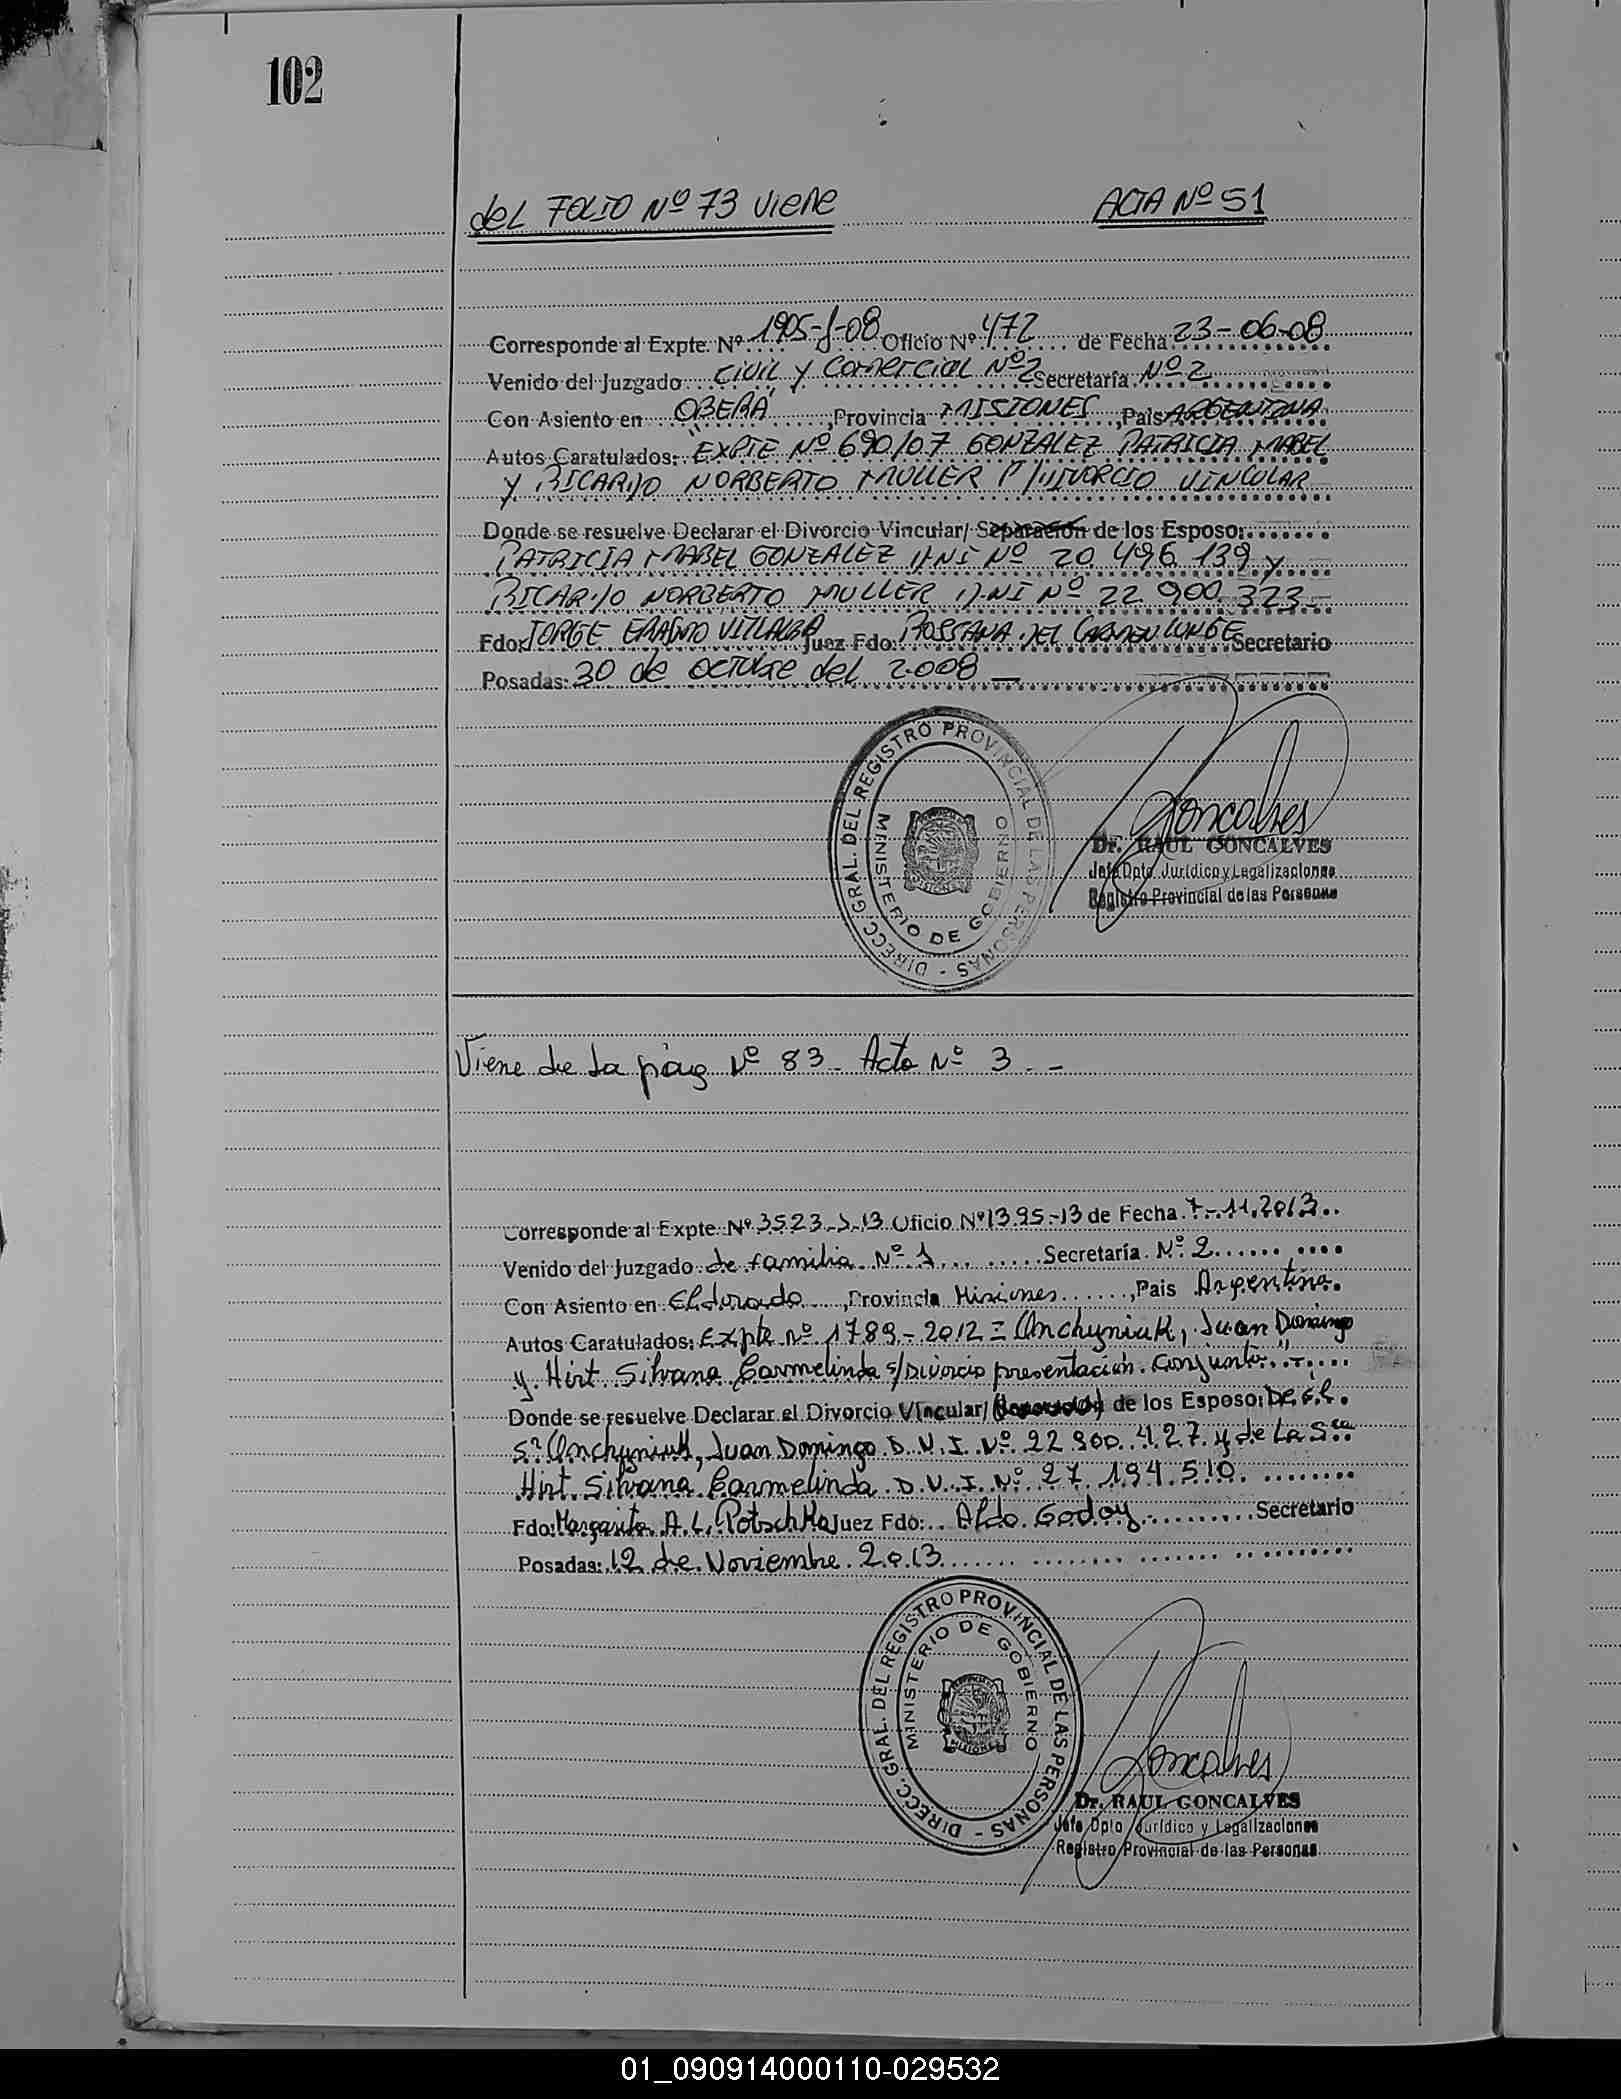 102
del FOLIO Nº 73 viene ACTA Nº 51
Corresponde al Expte. Nº 1905-J-08 Oficio Nº 472 de Fecha 23-06-08
Venido del Juzgado Civil y Comercial Nº 2 Secretaría Nº 2
Con Asiento en OBERÁ, Provincia MISIONES, Pais ARGENTINA
Autos Caratulados: EXPTE Nº 690/07 GONZALEZ PATRICIA MABEL
y RICARDO NORBERTO MULLER P/DIVORCIO VINCULAR
Donde se resuelve Declarar el Divorcio Vincular/ Separación de los Esposo:
PATRICIA MABEL GONZALEZ DNI Nº 20.496.139 y
RICARDO NORBERTO MULLER D.NI Nº 22.900.323
Fdo: JORGE ERASMO VILLALBA Juez Fdo: ROSSANA DEL CARMEN LUNGE Secretario
Posadas: 30 de octubre del 2.008
DIRECC. GRAL. DEL REGISTRO PROVINCIAL DE LAS PERSONAS -
MINISTERIO DE GOBIERNO
MISIONES
Goncalves
Dr. RAUL GONCALVES
Jefe Dpto. Jurídico y Legalizaciones
Registro Provincial de las Personas
Viene de La pág Nº 83. Acta Nº 3.-
Corresponde al Expte. Nº 3523-J-13 Oficio Nº 1395-13 de Fecha 7-11.2013
Venido del Juzgado de familia Nº 1 Secretaría Nº 2
Con Asiento en Eldorado, Provincia Misiones, Pais Argentina.
Autos Caratulados: Expte Nº 1789-2012 = Onchyniuk, Juan Domingo
y Hirt Silvana Carmelinda s/Divorcio presentación conjunta.
Donde se resuelve Declarar el Divorcio Vincular/ de los Esposo: De el
Sr Onchyniuk, Juan Domingo D.N.I. Nº 22.900.427 y de La Sra
Hirt Silvana Carmelinda D.N.I. Nº 27.194.510.
Fdo: Margarita A. L. Potschka Juez Fdo: Aldo Godoy Secretario
Posadas: 12 de Noviembre 2013
DIRECC. GRAL. DEL REGISTRO PROVINCIAL DE LAS PERSONAS -
MINISTERIO DE GOBIERNO
MISIONES
Goncalves
Dr. RAUL GONCALVES
Jefe Dpto Jurídico y Legalizaciones
Registro Provincial de las Personas
01_090914000110-029532